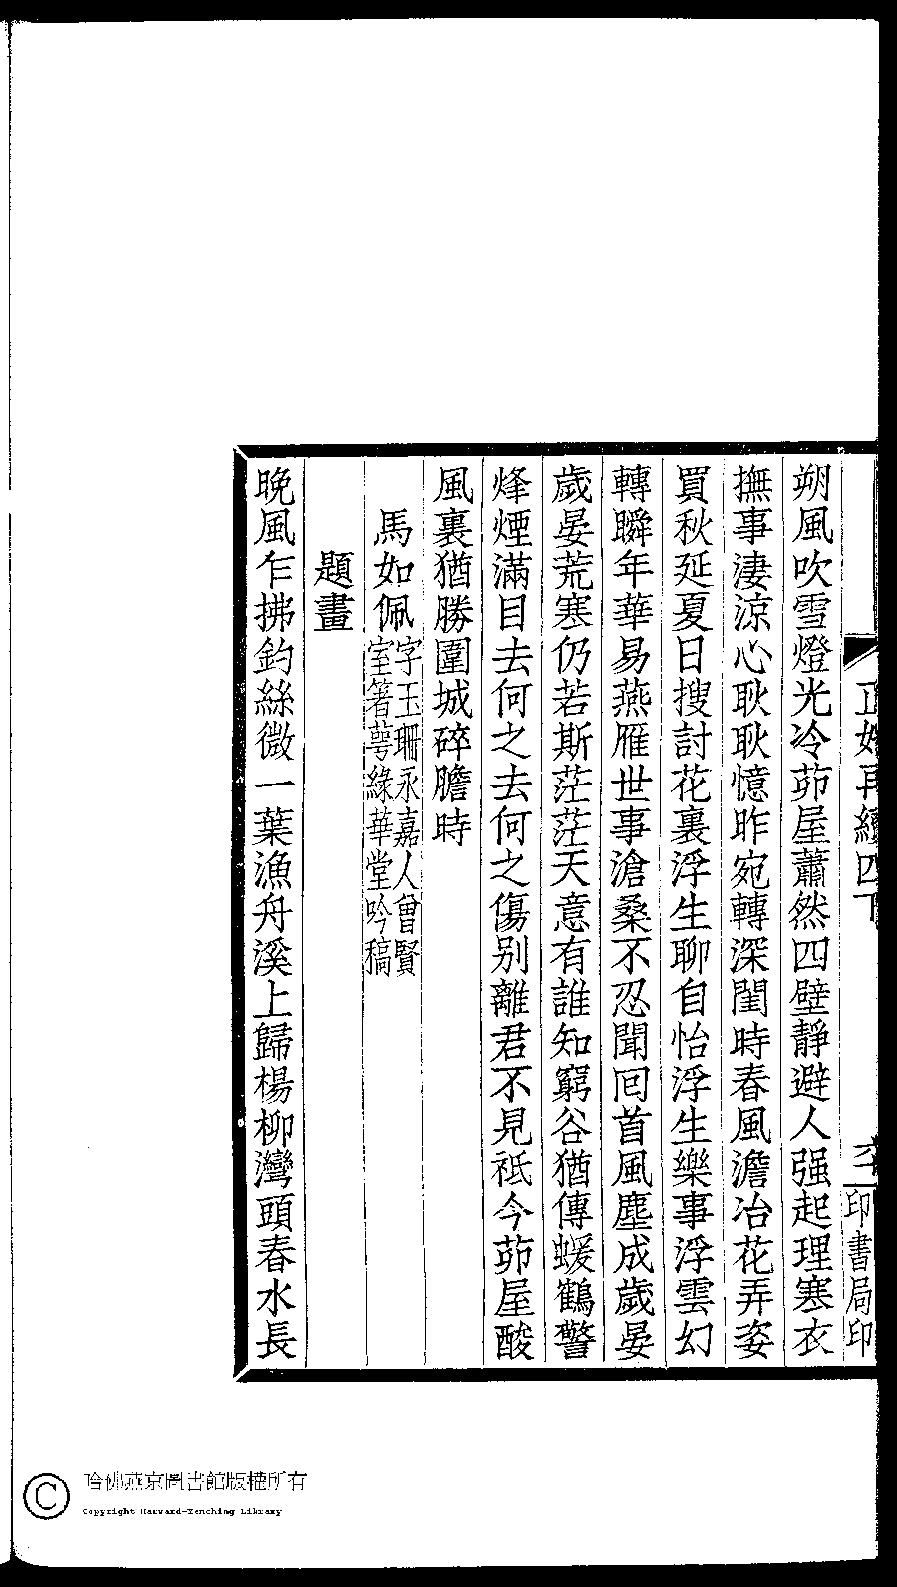 正始再續四下
印書局印
朔風吹雪燈光冷茆屋蕭然四壁靜避人强起理寒衣
撫事淒涼心耿耿憶昨宛轉深閨時春風澹冶花弄姿
買秋延夏日搜討花裏浮生聊自怡浮生樂事浮雲幻
轉瞬年華易燕雁世事滄桑不忍聞回首風塵成歲晏
歲晏荒寒仍若斯茫茫天意有誰知窮谷猶傳蝯鶴警
烽煙滿目去何之去何之傷别離君不見祗今茆屋酸
風裏猶勝圍城碎膽時
馬如佩字玉珊永嘉人曾賢
室箸蕚綠華堂吟稿
題畫
晩風乍拂釣絲微一葉漁舟溪上歸楊柳灣頭春水長
哈佛燕京圖書館版權所有
Copyright Harvard-Yenching Library